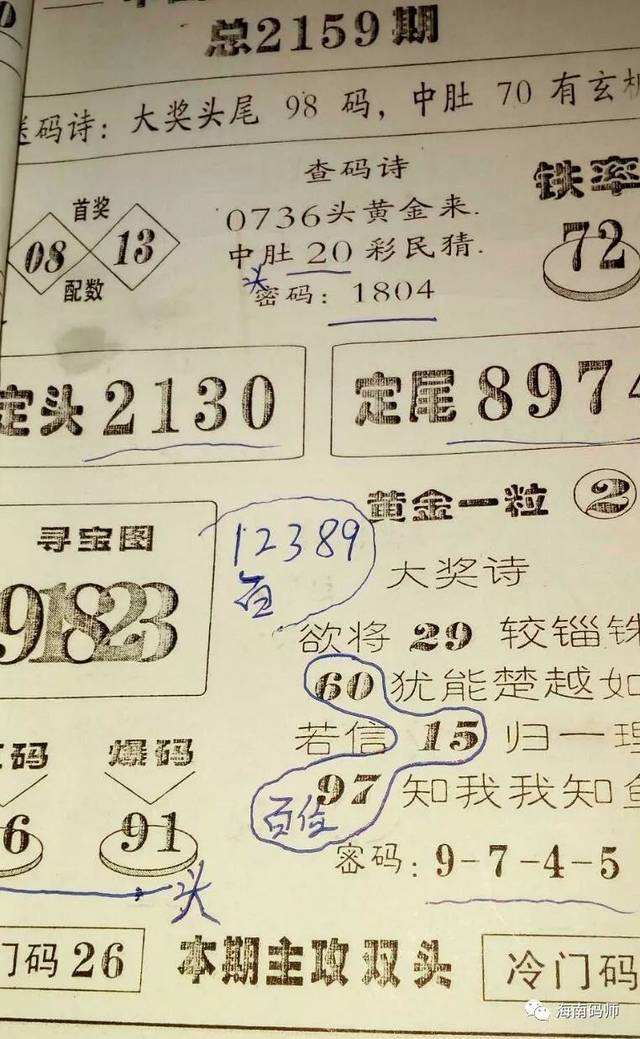 总2159期
送码诗：大奖头尾 98 码，中肚 70 有玄机
查码诗
铁率
首奖
08 13
配数
0736头黄金来.
中肚 20 彩民猜.
头
密码：1804
72
定头 2130
定尾 8974
黄金一粒 2
寻宝图
91823
12389
百
大奖诗
欲将 29 较锱铢
60 犹能楚越如
若信 15 归一理
97 知我我知鱼
百位
密码：9-7-4-5
码 爆码
6 91
头
门码 26
本期主攻双头
冷门码
海南码师